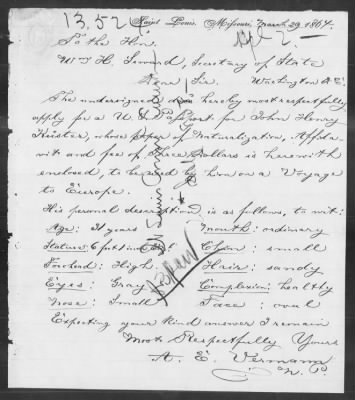 13.526
Saint Louis, Missouri, March 29, 1864.
To the Hon.
Wm H. Seward, Secretary of State
Dear Sir, Washington D.C.
The undersigned hereby most respectfully
apply for a U.S. Passport for John Henry
whose paper of Naturalization, Affida-
vit and fee of three Dollars is herewith
enclosed, to be used by him on a Voyage
to Europe.
His personal description is as follows, to wit:
Age: 31 years Mouth: ordinary
Stature: 6 feet 1 inch Chin: small
Forehead: High Hair: sandy
Eyes: Gray Complexion: healthy
Nose: Small Face: oval
Expecting your kind answer I remain
Most Respectfully Yours
A. E. Vermann
N. P.